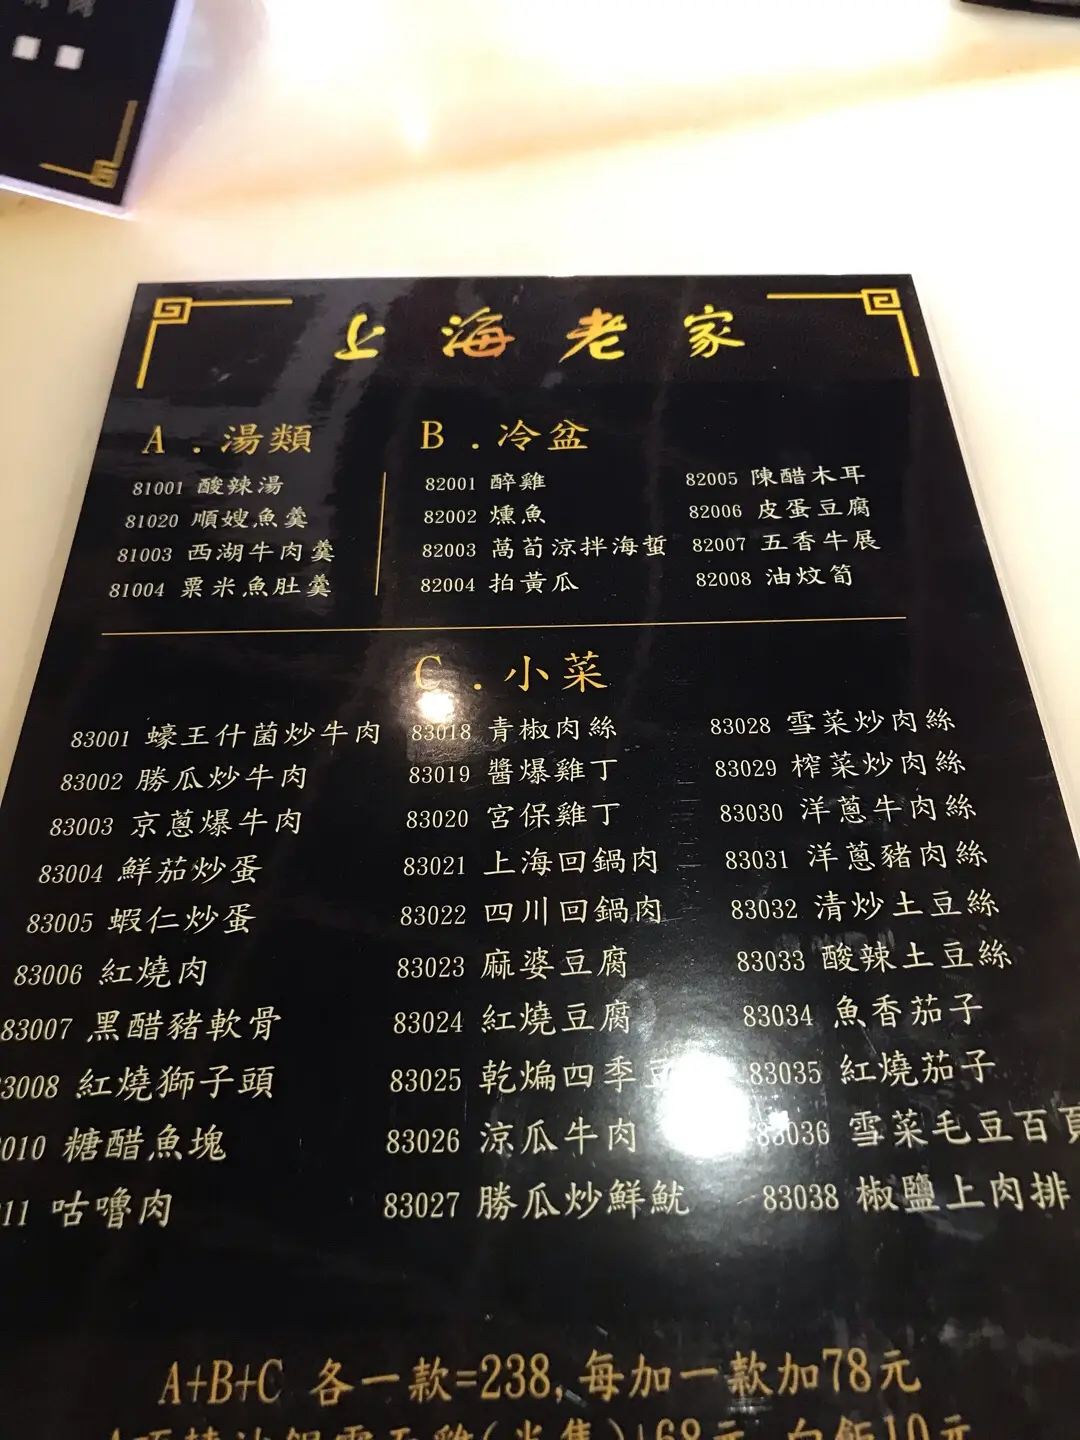 上海老家
A．湯類
81001 酸辣湯
81020 順嫂魚羹
81003 西湖牛肉羹
81004 粟米魚肚羹
B．冷盆
82001 醉雞
82002 燻魚
82003 萵荀涼拌海蜇
82004 拍黃瓜
82005 陳醋木耳
82006 皮蛋豆腐
82007 五香牛展
82008 油炆筍
C．小菜
83001 蠔王什菌炒牛肉
83002 勝瓜炒牛肉
83003 京蔥爆牛肉
83004 鮮茄炒蛋
83005 蝦仁炒蛋
83006 紅燒肉
83007 黑醋豬軟骨
3008 紅燒獅子頭
010 糖醋魚塊
11 咕嚕肉
83018 青椒肉絲
83019 醬爆雞丁
83020 宮保雞丁
83021 上海回鍋肉
83022 四川回鍋肉
83023 麻婆豆腐
83024 紅燒豆腐
83025 乾煸四季豆
83026 涼瓜牛肉
83027 勝瓜炒鮮魷
83028 雪菜炒肉絲
83029 榨菜炒肉絲
83030 洋蔥牛肉絲
83031 洋蔥豬肉絲
83032 清炒土豆絲
83033 酸辣土豆絲
83034 魚香茄子
83035 紅燒茄子
83036 雪菜毛豆百頁
83038 椒鹽上肉排
A+B+C 各一款=238,每加一款加78元
(半隻)+68元 白飯10元